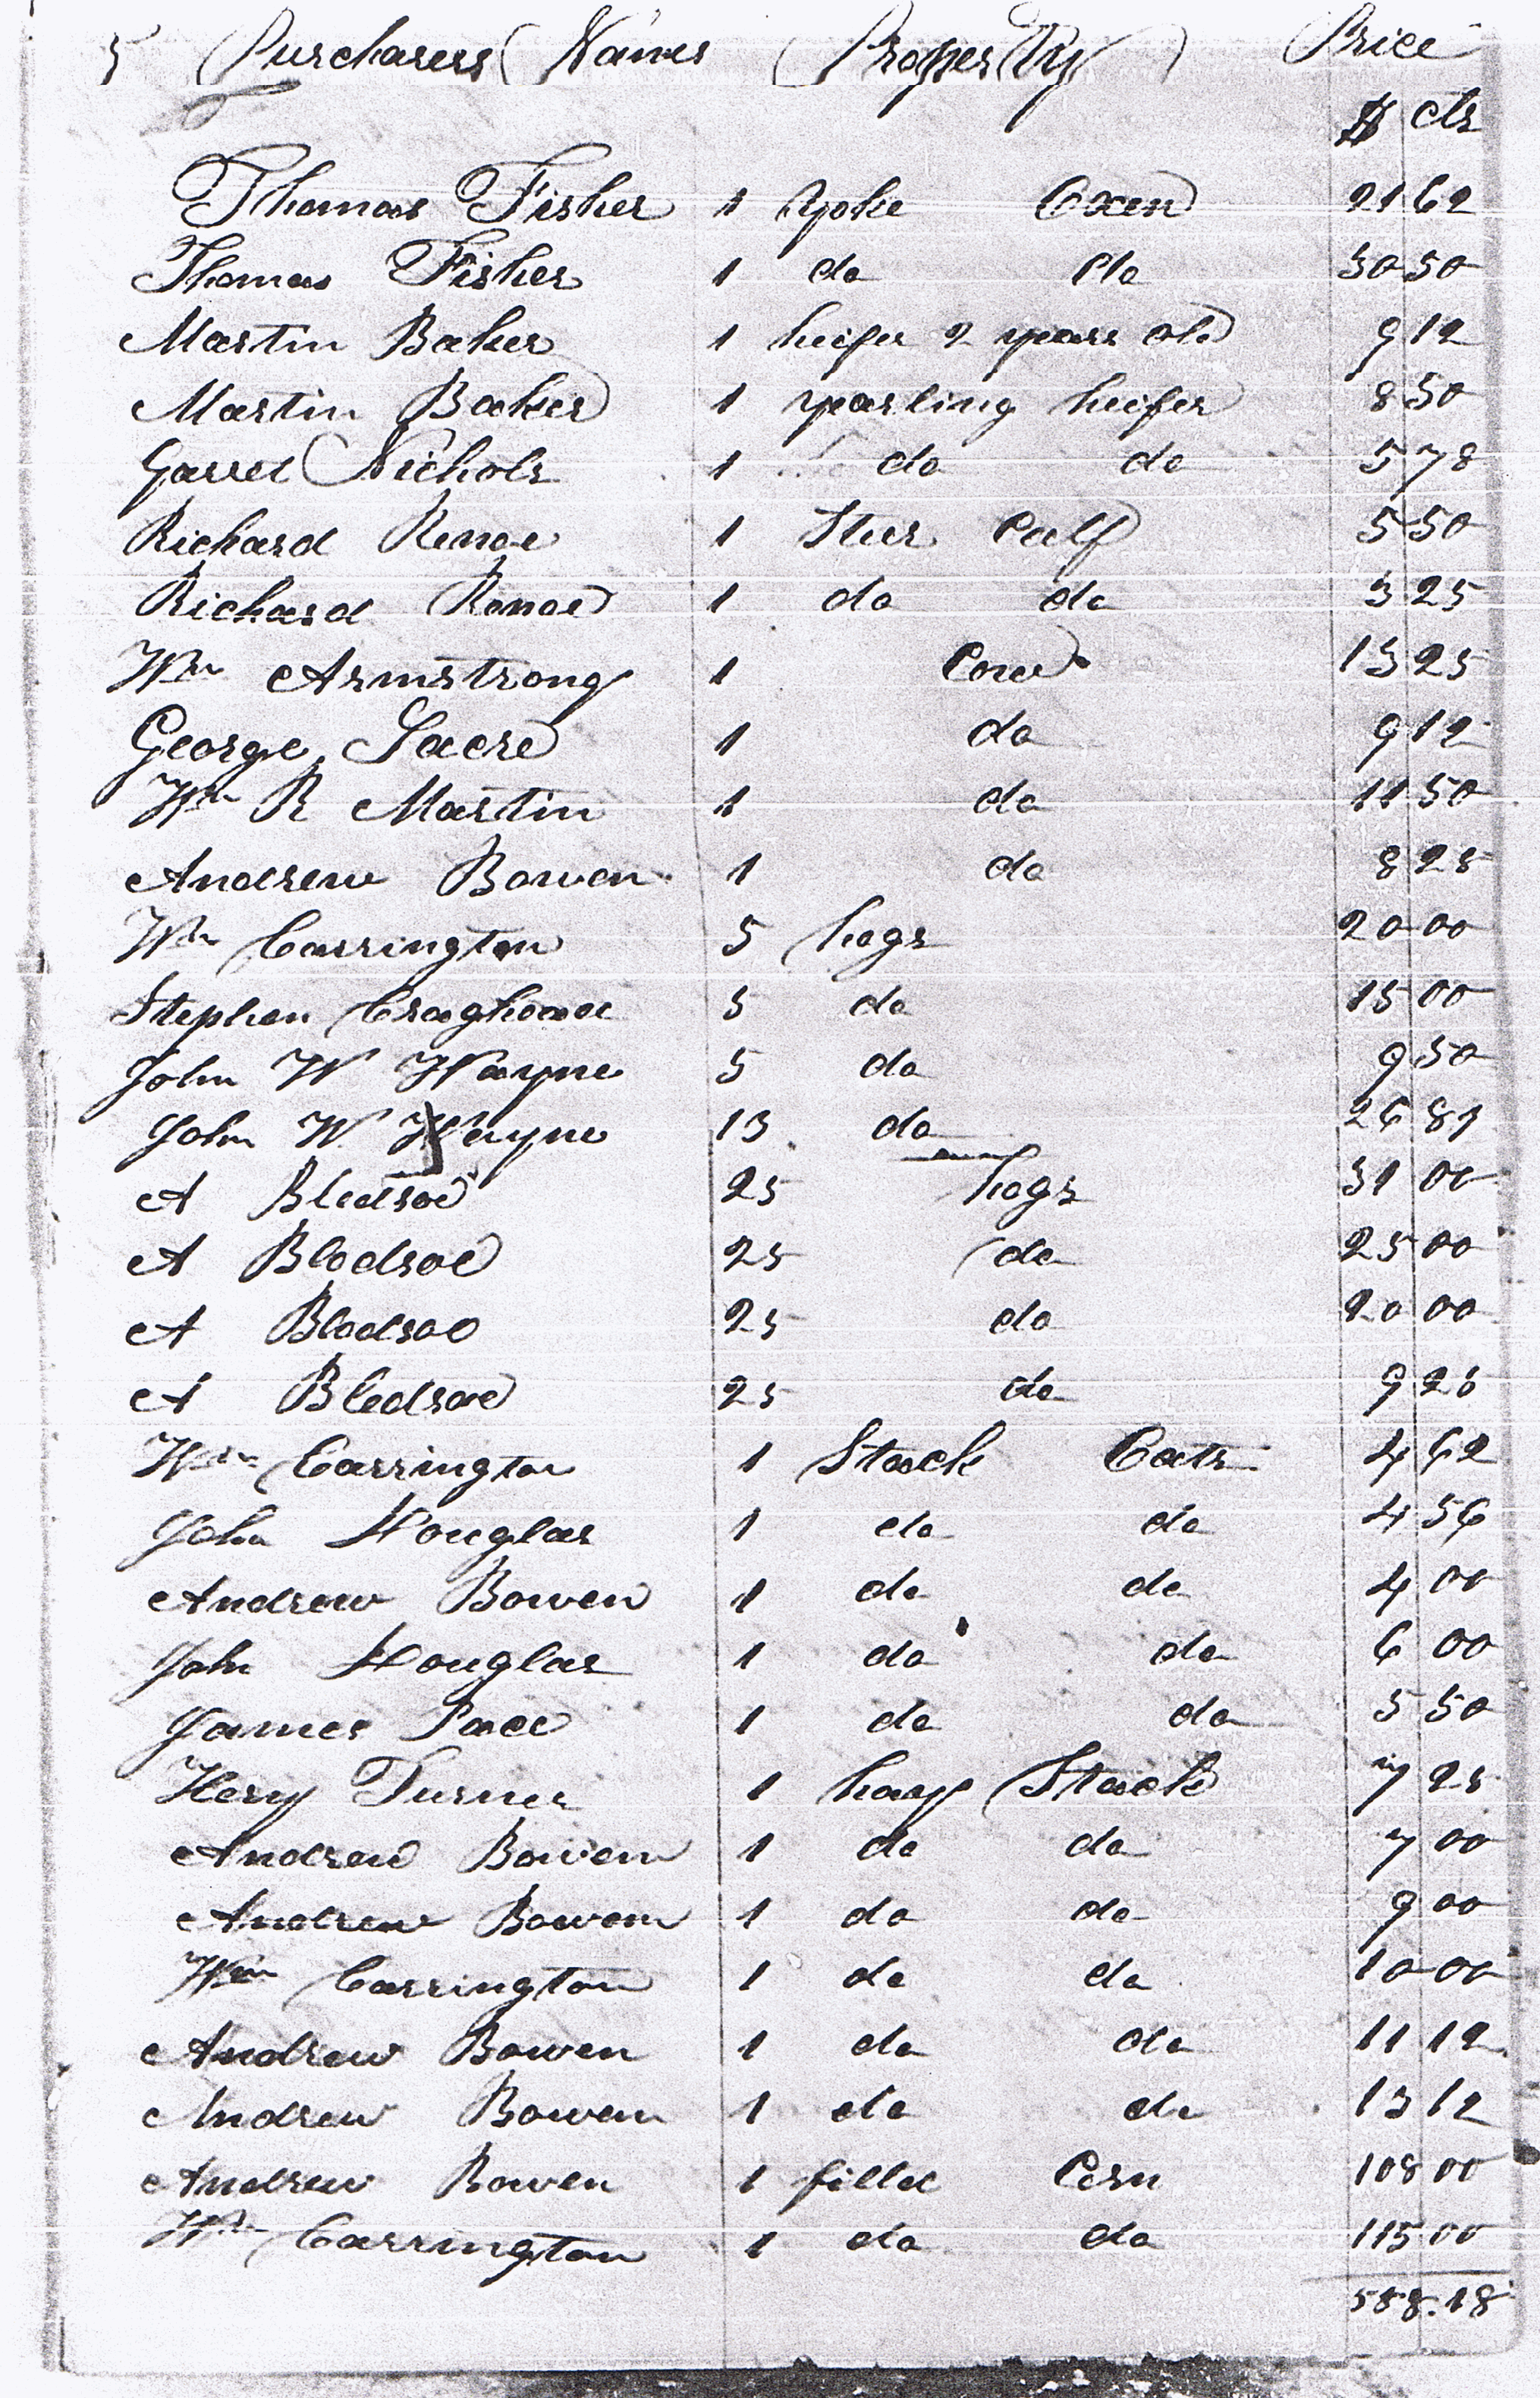 5 Purchasers Names Property Price
$ cts
Thomas Fisher 1 Yoke Oxen 21 62
Thomas Fisher 1 do do 30 50
Martin Baker 1 heifer 2 years old 9 12
Martin Baker 1 yearling heifer 8 50
Garret Nichols 1 do do 5 78
Richard Renoe 1 Steer Calf 5 50
Richard Renoe 1 do do 3 25
Wm Armstrong 1 Cow 13 25
George Sacre 1 do 9 12
Wm R Martin 1 do 11 50
Andrew Bowen 1 do 8 25
Wm Carrington 5 hogs 20 00
Stephen 5 do 15 00
John W Wayne 5 do 9 50
John W Wayne 13 do 26 87
A Bledsoe 25 hogs 31 00
A Bledsoe 25 do 25 00
A Bledsoe 25 do 20 00
A Bledsoe 25 do 9 25
Wm Carrington 1 Stack Oats 4 62
John Douglas 1 do do 4 56
Andrew Bowen 1 do do 4 00
John Douglas 1 do do 6 00
James Pace 1 do do 5 50
Henry Turner 1 hay Stack 7 25
Andrew Bowen 1 do do 7 00
Andrew Bowen 1 do do 9 00
Wm Carrington 1 do do 10 00
Andrew Bowen 1 do do 11 12
Andrew Bowen 1 do do 13 12
Andrew Bowen 1 Corn 108 00
Wm Carrington 1 do do 115 00
588.18